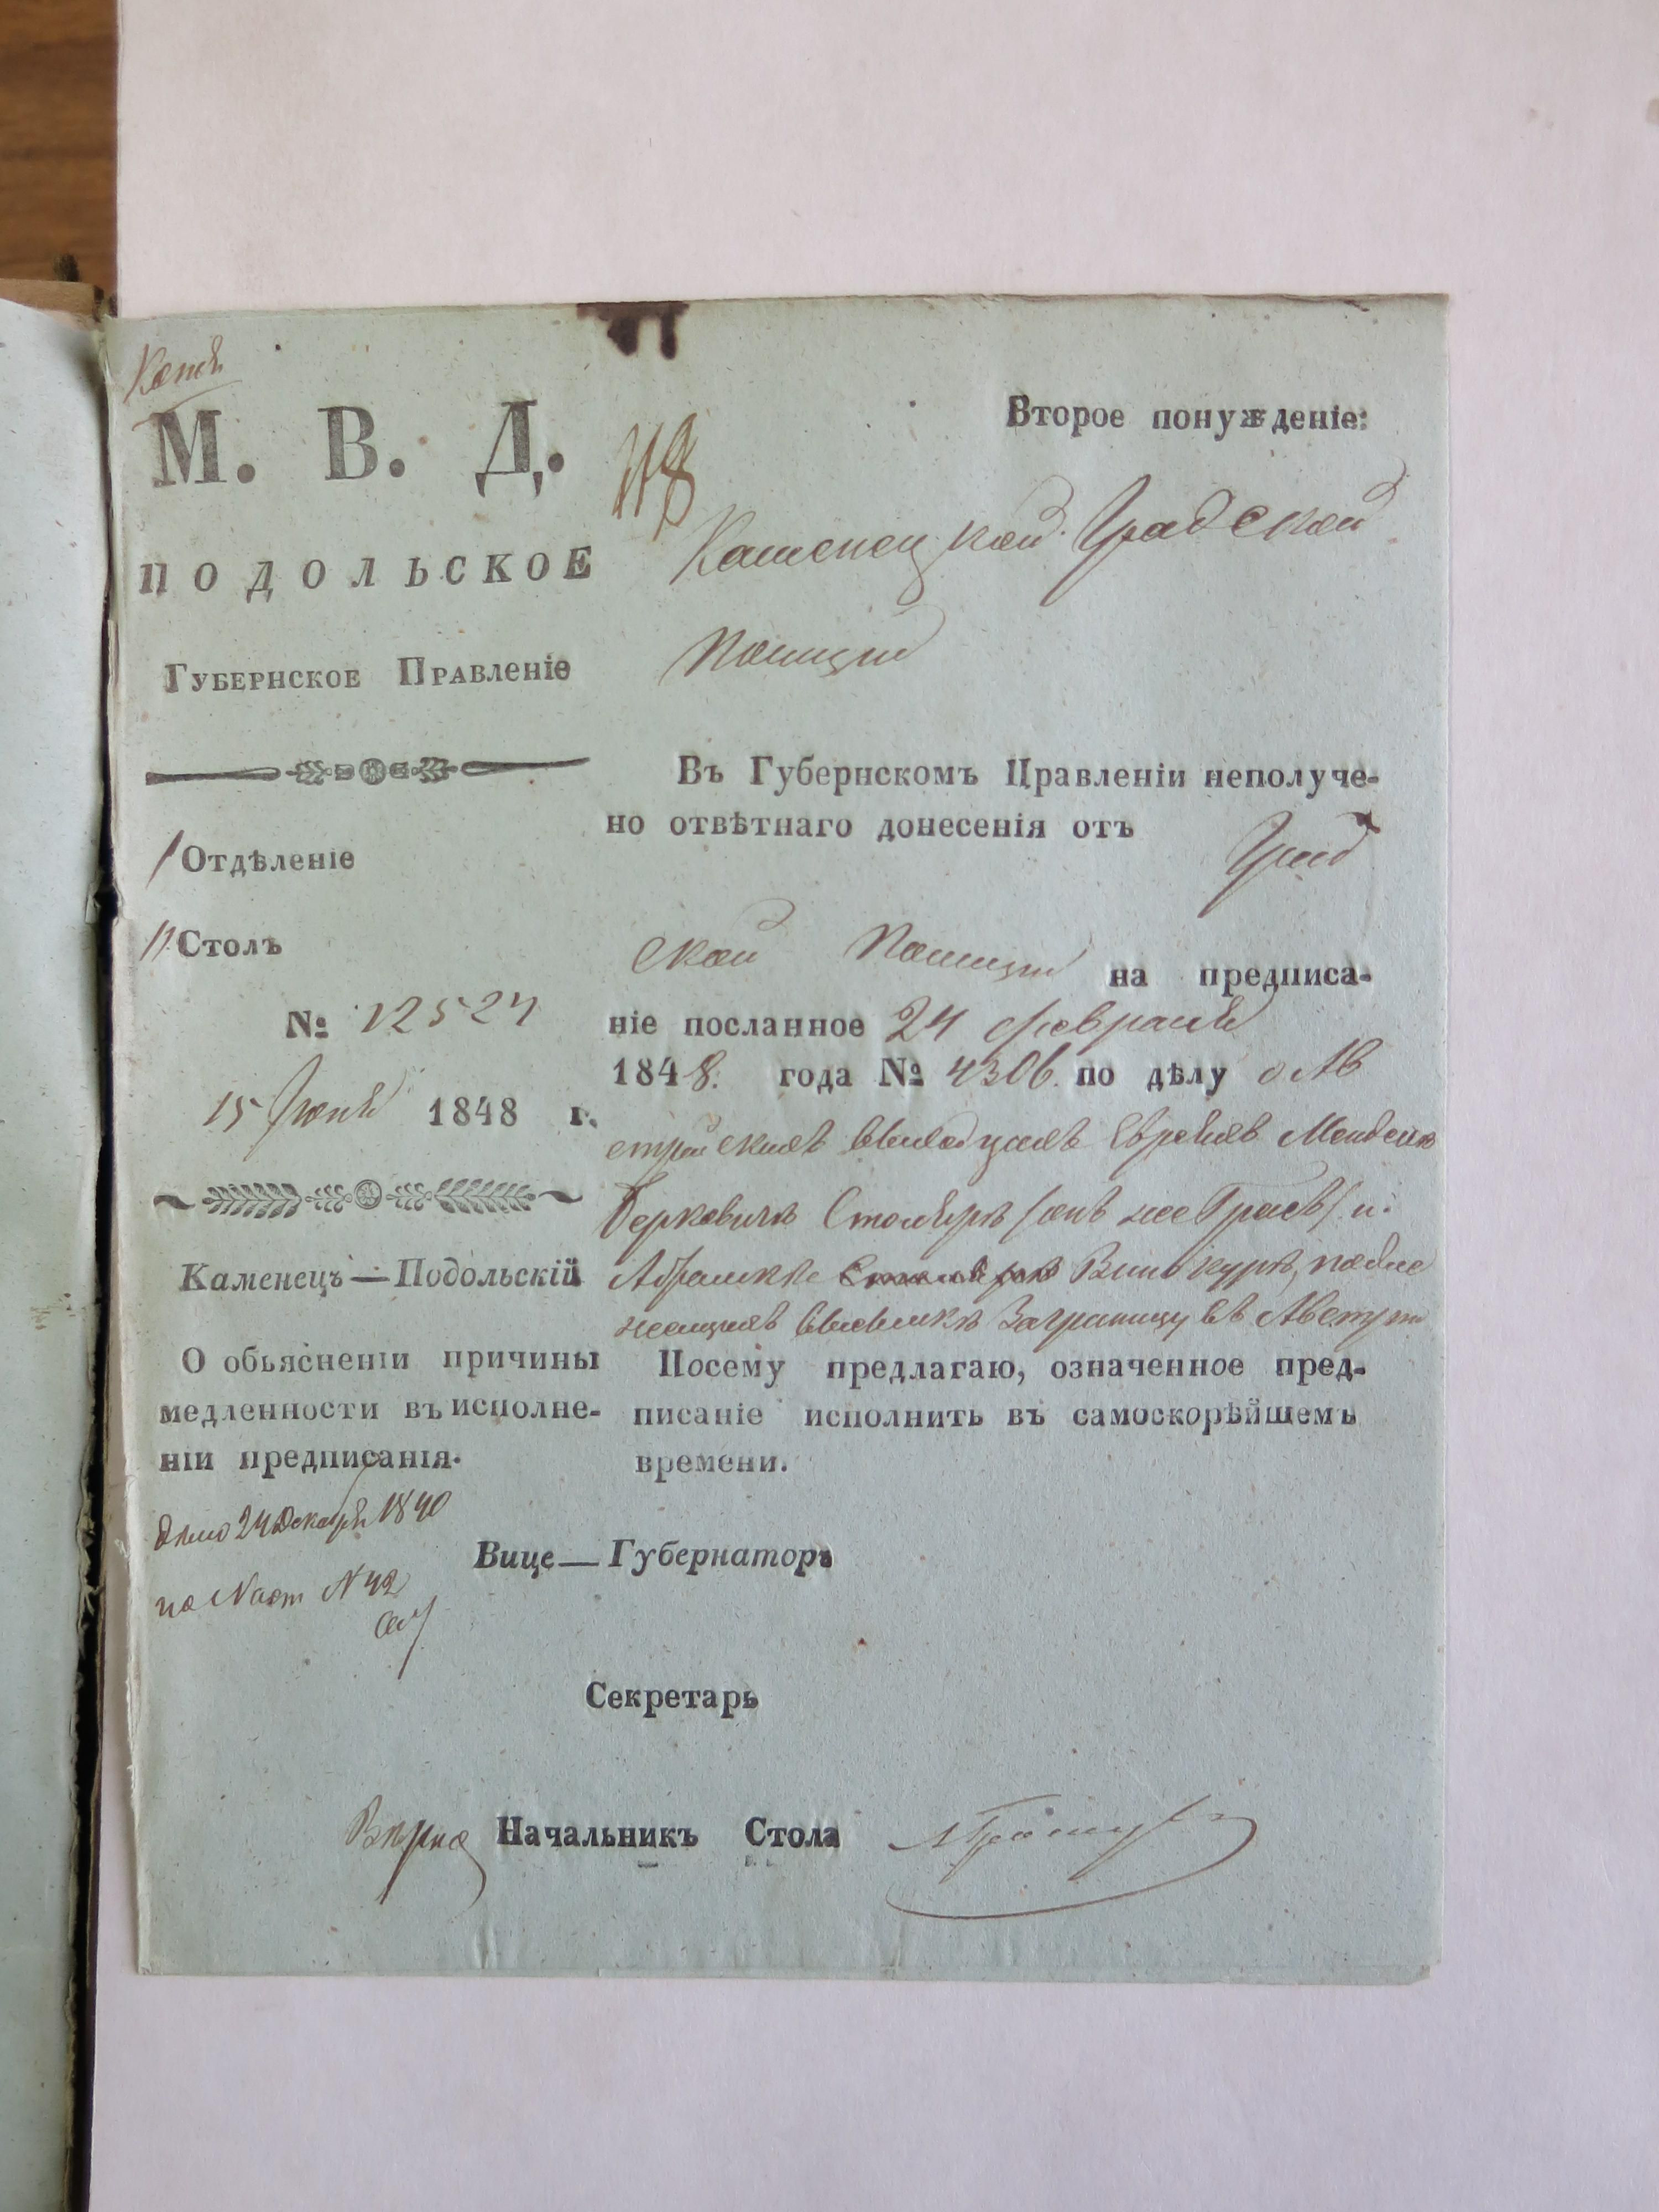 Копія
М. В. Д.
ПОДОЛЬСКОЕ
Губернское Правленіе
1 Отдѣленіе
11. Столъ
№ 12524
15 Іюня 1848 г.
Каменецъ—Подольскій
О обьясненіи причины
медленности въ исполне-
ніи предписанія.
24 Декабря 1840
по Наст N 42
118
Второе понужденіе:
Каменецкой Градской
Полиціи
Въ Губернскомъ Правленіи неполуче-
но отвѣтнаго донесенія отъ
Град
ской Полиціи на предписа-
ніе посланное 24 февраля
1848. года № 4306. по дѣлу о Ав
стрійскихъ выходцахъ Евреяхъ Менделѣ
Берковичѣ Столярѣ (онъ же Грасъ) и
Абрамкѣ Винокурѣ, подле
жащихъ высылкѣ Заграницу въ Австрію
Посему предлагаю, означенное пред-
писаніе исполнить въ самоскорѣйшемъ
времени.
Вице—Губернаторъ
Секретарь
Вѣрно Начальникъ Стола